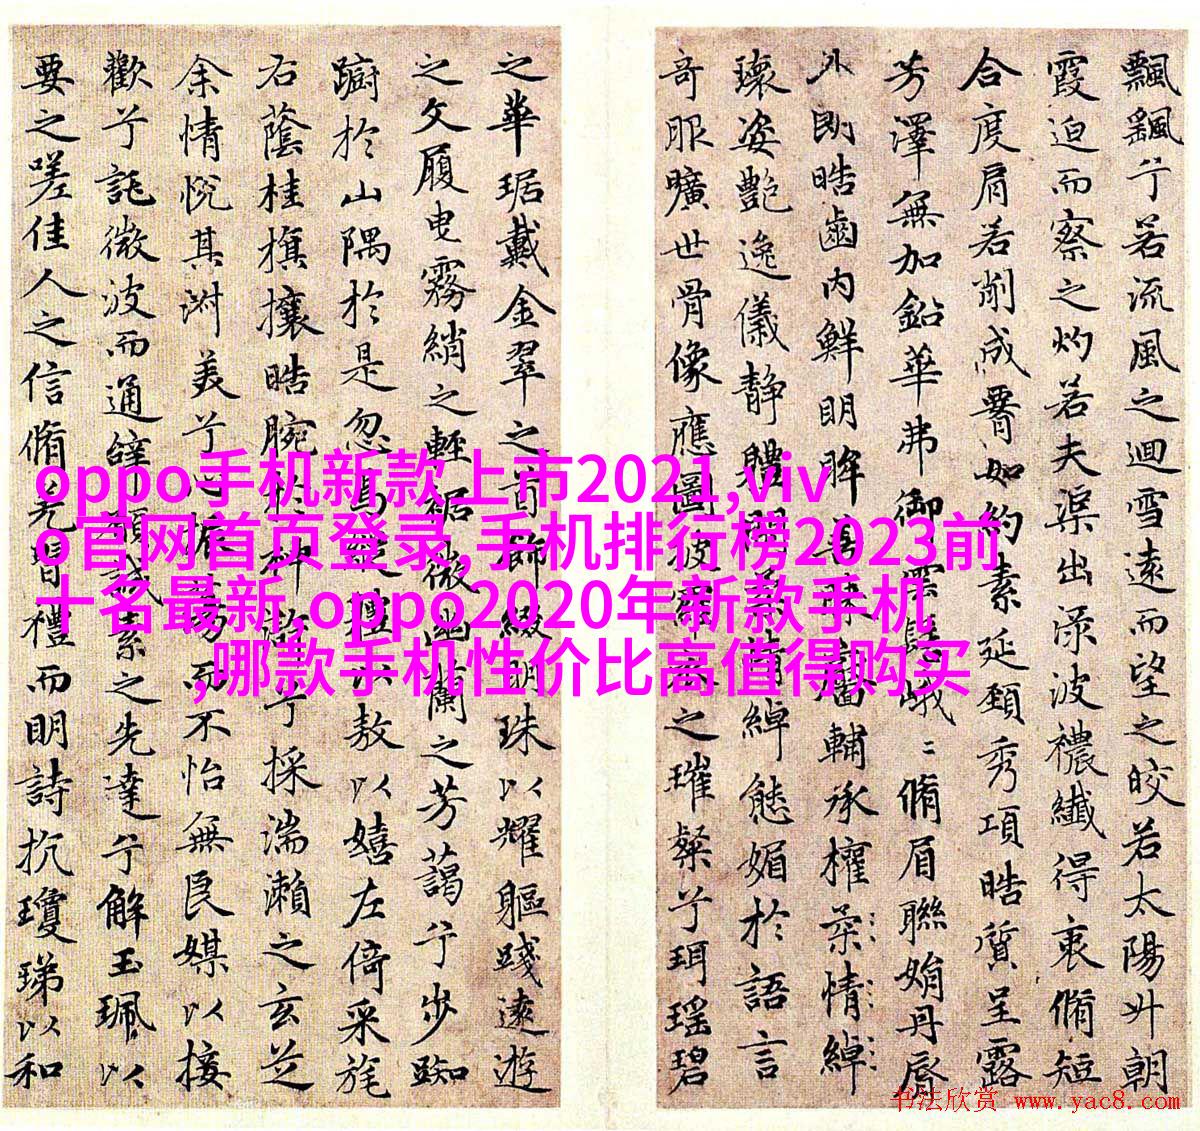 飄飖兮若流風之迴雪遠而望之皎若太陽升朝
霞迫而察之灼若夫渠出渌波禯纖得衷脩短
合度肩若削成𦝫如約素延頸秀項皓質呈露
芳澤無加鉛華弗御雲髻峨〻脩眉聯娟丹脣
外朗皓齒內鮮明眸善睞靨輔承權柔情綽
瓌姿艷逸儀静體閑柔情綽態媚於語言
奇服曠世骨像應圖披羅衣之璀粲兮珥瑶碧
之華琚戴金翠之首飾綴明珠以耀軀踐遠遊
之文履曳霧綃之輕裾微幽蘭之芳藹兮步踟
蹰於山隅於是忽焉縱體以敖以嬉左倚采旄
右蔭桂旗攘皓腕於神滸兮採湍瀨之玄芝
余情悅其淑美兮心振蕩而不怡無良媒以接
歡兮託微波而通辭願誠素之先達兮解玉珮以
要之嗟佳人之信脩羌習禮而明詩抗瓊珶以和
oppo手机新款上市2021,viv
o官网首页登录,手机排行榜2023前
十名最新,oppo2020年新款手机
,哪款手机性价比高值得购买
书法欣赏 www.yac8.com